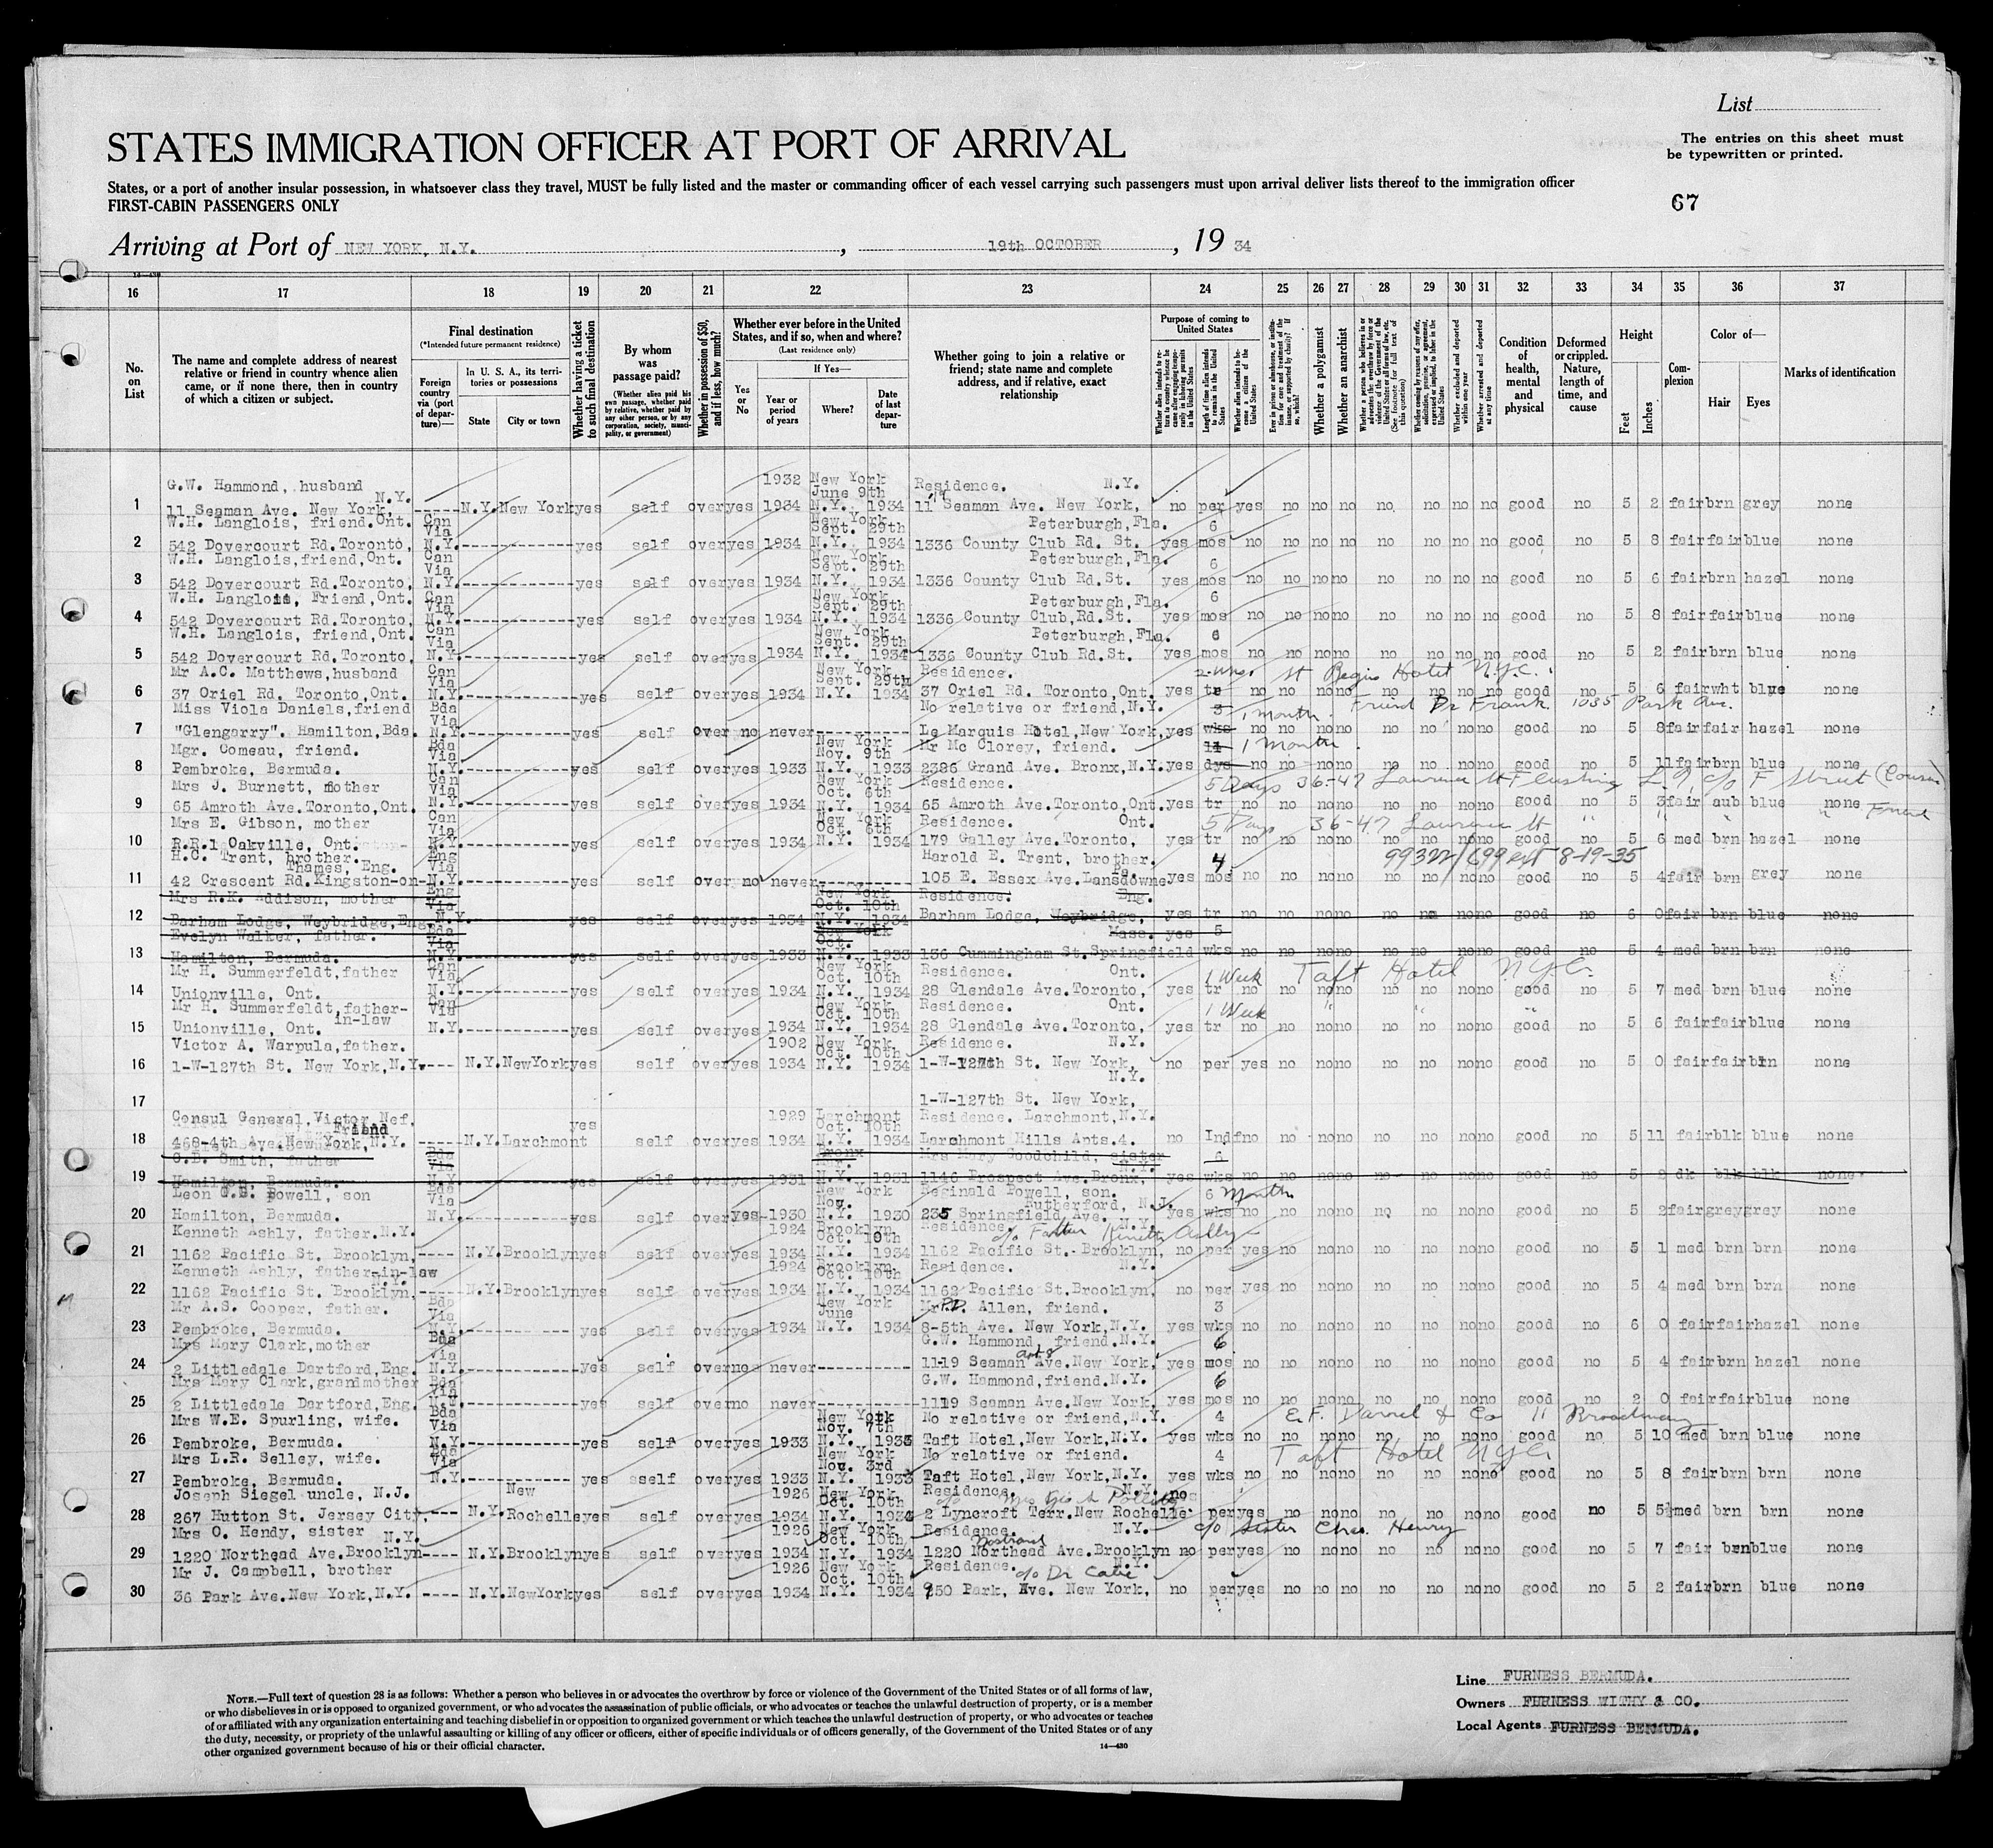 List
STATES IMMIGRATION OFFICER AT PORT OF ARRIVAL
The entries on this sheet must
be typewritten or printed.
States, or a port of another insular possession, in whatsoever class they travel, MUST be fully listed and the master or commanding officer of each vessel carrying such passengers must upon arrival deliver lists thereof to the immigration officer
FIRST-CABIN PASSENGERS ONLY
67
Arriving at Port of NEW YORK, N.Y. , 19th OCTOBER , 19 34
16 17 18 19 20 21 22 23 24 25 26 27 28 29 30 31 32 33 34 35 36 37
No. on List
The name and complete address of nearest relative or friend in country whence alien came, or if none there, then in country of which a citizen or subject.
Final destination
(*Intended future permanent residence)
Foreign country via (port of departure)—
In U. S. A., its territories or possessions
State City or town
Whether having a ticket to such final destination
By whom was passage paid?
(Whether alien paid his own passage, whether paid by relative, whether paid by any other person, or by any corporation, society, municipality, or government)
Whether in possession of $50, and if less, how much?
Whether ever before in the United States, and if so, when and where?
(Last residence only)
Yes or No
If Yes—
Year or period of years
Where?
Date of last departure
Whether going to join a relative or friend; state name and complete address, and if relative, exact relationship
Purpose of coming to United States
Length of time alien intends to remain in the United States
Whether a polygamist
Whether an anarchist
Condition of health, mental and physical
Deformed or crippled. Nature, length of time, and cause
Height
Feet Inches
Complexion
Color of—
Hair Eyes
Marks of identification
G.W. Hammond, husband N.Y. 1932 New York June 9th Residence. N.Y.
1 11 Seaman Ave. New York, ----- N.Y. New York yes self over yes 1934 N.Y. 1934 11 Seaman Ave. New York, no per yes no no no no no no no good no 5 2 fair brn grey none
W.H. Langlois, friend. Ont. Can Via New York Sept. 29th Peterburgh, Fla. 6
2 542 Dovercourt Rd. Toronto, N.Y. yes self over yes 1934 N.Y. 1934 1336 County Club Rd. St. yes mos no no no no no no no no good no 5 8 fair fair blue none
W.H. Langlois, friend, Ont. Can Via New York Sept. 29th Peterburgh, Fla. 6
3 542 Dovercourt Rd. Toronto, N.Y. yes self over yes 1934 N.Y. 1934 1336 County Club Rd. St. yes mos no no no no no no no no good no 5 6 fair brn hazel none
W.H. Langlois, Friend, Ont. Can Via New York Sept. 29th Peterburgh, Fla. 6
4 542 Dovercourt Rd. Toronto, N.Y. yes self over yes 1934 N.Y. 1934 1336 County Club, Rd. St. yes mos no no no no no no no no good no 5 8 fair fair blue none
W.H. Langlois, friend, Ont. Can Via New York Sept. 29th Peterburgh, Fla. 6
5 542 Dovercourt Rd. Toronto, N.Y. yes self over yes 1934 N.Y. 1934 1336 County Club Rd. St. yes mos no no no no no no no no good no 5 2 fair brn blue none
Mr A.C. Matthews, husband Can Via New York Sept. 29th Residence. 2 wks. St Regis Hotel N.Y.C.
6 37 Oriel Rd. Toronto, Ont. N.Y. yes self over yes 1934 N.Y. 1934 37 Oriel Rd. Toronto, Ont. yes tr no no no no no no no no good no 5 6 fair wht blue none
Miss Viola Daniels, friend Bda Via No relative or friend, N.Y. 3 1 month. Friend Dr Frank 1035 Park Ave.
7 "Glengarry". Hamilton, Bda. N.Y. yes self over no never Le Marquis Hotel, New York, yes wks no no no no no no no no good no 5 8 fair fair hazel none
Mgr. Comeau, friend. Bda Via New York Nov. 9th Mr Mc Clorey, friend. 14 1 month.
8 Pembroke, Bermuda. N.Y. yes self over yes 1933 N.Y. 1933 2386 Grand Ave. Bronx, N.Y. yes dys no no no no no no no no good no 5 11 fair brn blue none
Mrs J. Burnett, mother Can Via New York Oct. 6th Residence. 5 Days 36-47 Laurence St Flushing L.I. c/o F Street (Cousin)
9 65 Amroth Ave. Toronto, Ont. N.Y. yes self over yes 1934 N.Y. 1934 65 Amroth Ave. Toronto, Ont. yes tr no no no no no no no no good no 5 3 fair aub blue none
Mrs E. Gibson, mother Can Via New York Oct. 6th Residence. Ont. 5 Days 36-47 Laurence St " " " " Friend
10 R.R.1 Oakville, Ont. N.Y. yes self over yes 1934 N.Y. 1934 179 Galley Ave. Toronto, yes tr no no no no no no no no good no 5 6 med brn hazel none
H.C. Trent, brother. Thames, Eng. Eng Via Harold E. Trent, brother. Pa. 4 99322/699 ext 8-19-35
11 42 Crescent Rd. Kingston-on- N.Y. yes self over no never 105 E. Essex Ave. Lansdowne yes mos no no no no no no no no good no 5 4 fair brn grey none
Mrs R.K. Addison, mother Eng Via New York Oct. 10th Residence. Eng.
12 Barham Lodge, Weybridge, Eng. N.Y. yes self over yes 1934 N.Y. 1934 Barham Lodge, Weybridge, yes tr no no no no no no no no good no 6 0 fair brn blue none
Evelyn Walker, father. Bda Via New York Oct. Mass. yes 5
13 Hamilton, Bermuda. N.Y. yes self over yes 1933 N.Y. 1933 136 Cummingham St. Springfield wks no no no no no no no no good no 5 4 med brn brn none
Mr H. Summerfeldt, father Can Via New York Oct. 10th Residence. Ont. 1 Week Taft Hotel N.Y.C.
14 Unionville, Ont. N.Y. yes self over yes 1934 N.Y. 1934 28 Glendale Ave. Toronto, yes tr no no no no no no no no good no 5 7 med brn blue none
Mr H. Summerfeldt, father-in-law Can Via New York Oct. 10th Residence. Ont. 1 Week " " "
15 Unionville, Ont. N.Y. yes self over yes 1934 N.Y. 1934 28 Glendale Ave. Toronto, yes tr no no no no no no no no good no 5 6 fair fair blue none
Victor A. Warpula, father. 1902 New York Oct. 10th Residence. N.Y.
16 1-W-127th St. New York, N.Y. ---- N.Y. New York yes self over yes 1934 N.Y. 1934 1-W-127th St. New York, no per yes no no no no no no no good no 5 0 fair fair brn none
N.Y.
17 1-W-127th St. New York,
Consul General, Victor Nef. Friend yes 1929 Larchmont Oct. 10th Residence. Larchmont, N.Y.
18 468-4th Ave. New York, N.Y. ----- N.Y. Larchmont self over yes 1934 N.Y. 1934 Larchmont Hills Apts. 4. no Indf no no no no no no no no good no 5 11 fair blk blue none
C.B. Smith, father Bda Via Bronx Mar. Mrs Mary Goodchild, sister N.Y. 6
19 Hamilton, Bermuda. N.Y. yes self over yes 1931 N.Y. 1931 1146 Prospect Ave. Bronx, yes wks no no no no no no no no good no 5 8 dk blk blk none
Leon Powell, son Via New York Nov. Reginald Powell, son. Rutherford, N.J. 6 Months
20 Hamilton, Bermuda. N.Y. yes self over yes 1930 N.Y. 1930 235 Springfield Ave. yes wks no no no no no no no no good no 5 2 fair grey grey none
Kenneth Ashly, father. N.Y. 1924 Brooklyn Oct. 10th Residence. N.Y. c/o Father Kenneth Ashly
21 1162 Pacific St. Brooklyn, ---- N.Y. Brooklyn yes self over yes 1934 N.Y. 1934 1162 Pacific St. Brooklyn, no per yes no no no no no no no good no 5 1 med brn brn none
Kenneth Ashly, father-in-law N.Y. 1924 Brooklyn Oct. 10th Residence. N.Y.
22 1162 Pacific St. Brooklyn, ---- N.Y. Brooklyn yes self over yes 1934 N.Y. 1934 1162 Pacific St. Brooklyn, no per yes no no no no no no no good no 5 4 med brn brn none
Mr A.S. Cooper, father. Bda Via New York June Mr P.D. Allen, friend. 3
23 Pembroke, Bermuda. N.Y. yes self over yes 1934 N.Y. 1934 8-5th Ave. New York, N.Y. yes wks no no no no no no no no good no 6 0 fair fair hazel none
Mrs Mary Clark, mother Bda Via G.W. Hammond, friend. N.Y. 6
24 2 Littledale Dartford, Eng. N.Y. yes self over no never 1119 Seaman Ave. New York, yes mos no no no no no no no no good no 5 4 fair brn hazel none
Mrs Mary Clark, grandmother Bda Via G.W. Hammond, friend. N.Y. 6
25 2 Littledale Dartford, Eng. N.Y. yes self over no never 1119 Seaman Ave. New York, yes mos no no no no no no no no good no 2 0 fair fair blue none
Mrs W.E. Spurling, wife. Bda Via New York Nov. 7th No relative or friend, N.Y. 4 E. F. Darrel & Co 11 Broadway
26 Pembroke, Bermuda. N.Y. yes self over yes 1933 N.Y. 1933 Taft Hotel, New York, N.Y. yes wks no no no no no no no no good no 5 10 med brn blue none
Mrs L.R. Selley, wife. Bda Via New York Nov. 3rd No relative or friend. 4 Taft Hotel N.Y.C.
27 Pembroke, Bermuda. N.Y. yes self over yes 1933 N.Y. 1933 Taft Hotel, New York, N.Y. yes wks no no no no no no no no good no 5 8 fair brn brn none
Joseph Siegel uncle, N.J. New 1926 New York Oct. 10th Residence. N.Y. no
28 267 Hutton St. Jersey City, ---- N.Y. Rochelle yes self over yes 1934 N.Y. 1934 2 Lyncroft Terr. New Rochelle per yes no no no no no no no good no 5 5½ med brn brn none
Mrs O. Hendy, sister N.Y. 1926 New York Oct. 10th Residence. N.Y. c/o Sister Chas. Henry
29 1220 Northead Ave. Brooklyn ---- N.Y. Brooklyn yes self over yes 1934 N.Y. 1934 1220 Northead Ave. Brooklyn no per yes no no no no no no no good no 5 7 fair brn blue none
Mr J. Campbell, brother 1926 New York Oct. 10th Residence. N.Y. c/o Dr
30 36 Park Ave. New York, N.Y. ---- N.Y. New York yes self over yes 1934 N.Y. 1934 950 Park, Ave. New York, no per yes no no no no no no no good no 5 2 fair brn blue none
NOTE.—Full text of question 28 is as follows: Whether a person who believes in or advocates the overthrow by force or violence of the Government of the United States or of all forms of law,
or who disbelieves in or is opposed to organized government, or who advocates the assassination of public officials, or who advocates or teaches the unlawful destruction of property, or is a member
of or affiliated with any organization entertaining and teaching disbelief in or opposition to organized government or which teaches the unlawful destruction of property, or who advocates or teaches
the duty, necessity, or propriety of the unlawful assaulting or killing of any officer or officers, either of specific individuals or of officers generally, of the Government of the United States or of any
other organized government because of his or their official character.
14—430
Line FURNESS BERMUDA.
Owners FURNESS WITHY & CO.
Local Agents FURNESS BERMUDA.